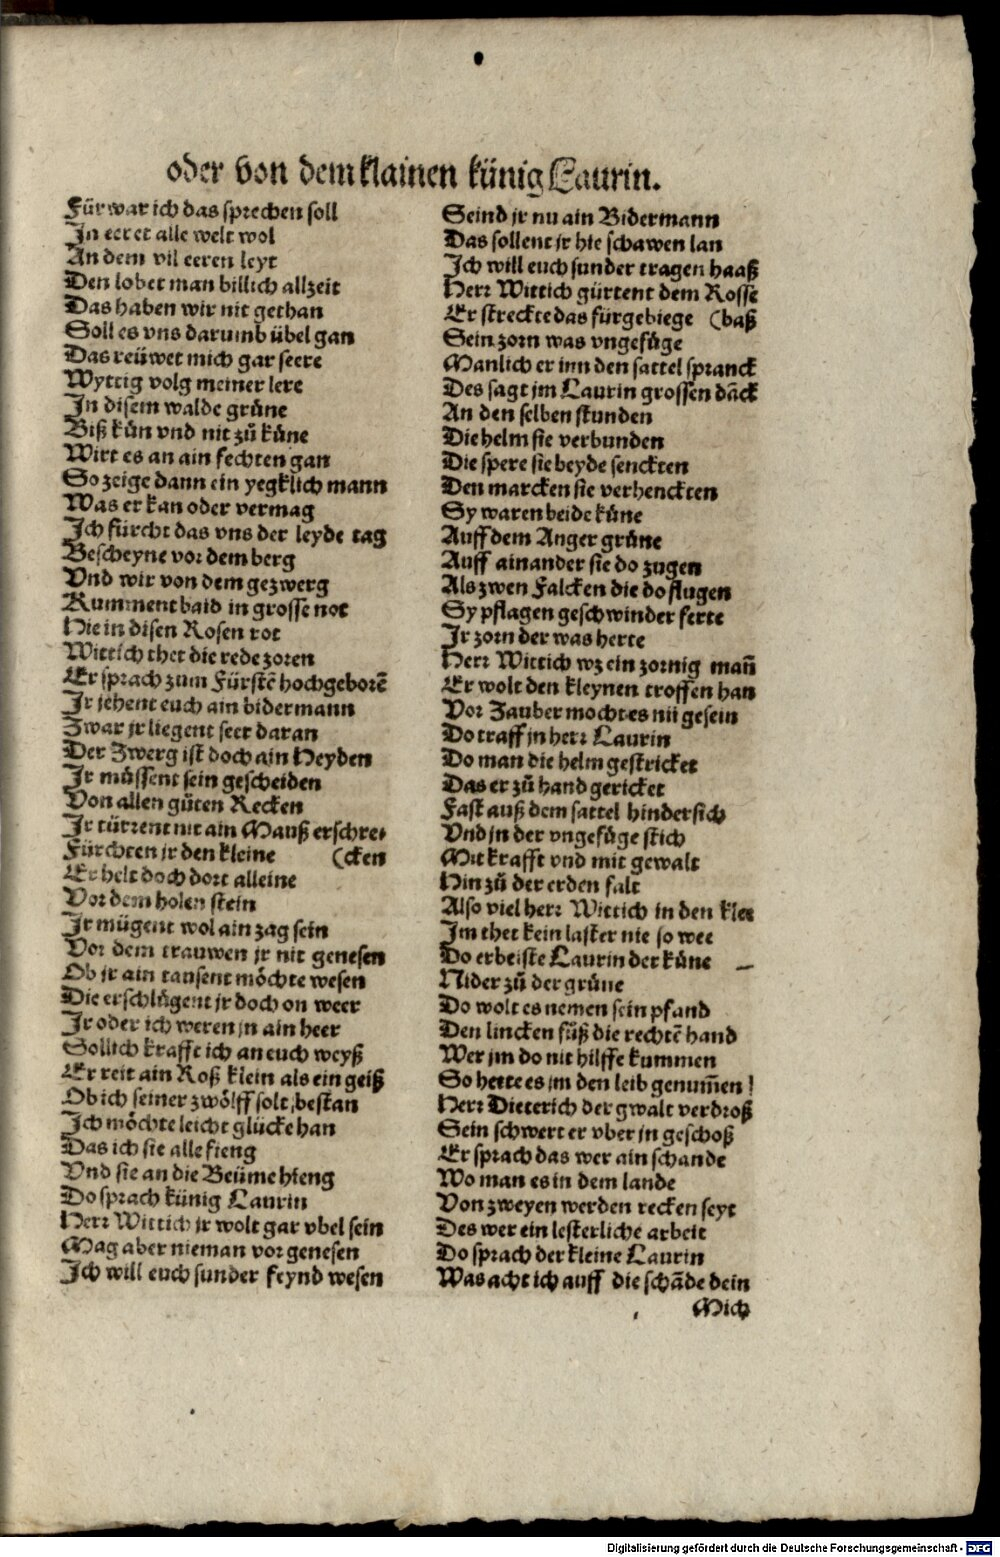 oder von dem klainen künig Laurin.
Fürwar ich das sprechen soll
In eeret alle welt wol
An dem vil eeren leyt
Den lobet man billich allzeit
Das haben wir nit gethan
Soll es vns darumb übel gan
Das reüwet mich gar seere
Wyttig volg meiner lere
In disem walde grüne
Biß kün vnd nit zů kůne
Wirt es an ain fechten gan
So zeige dann ein yegklich mann
Was er kan oder vermag
Ich fürcht das vns der leyde tag
Bescheyne vor dem berg
Vnd wir von dem gezwerg
Kumment baid in grosse not
Hie in disen Rosen rot
Wittich thet die rede zoren
Er sprach zum Fürstē hochgeborē
Ir jehent euch ain bidermann
Zwar jr liegent seer daran
Der Zwerg ist doch ain Heyden
Ir müssent sein gescheiden
Von allen gůten Recken
Ir türrent nit ain Mauß erschre-
Fürchten jr den kleine (cken
Er helt doch dort alleine
Vor dem holen stein
Ir mügent wol ain zag sein
Vor dem trauwen jr nit genesen
Ob jr ain tausent möchte wesen
Die erschlügent jr doch on weer
Ir oder ich weren jn ain heer
Sollich krafft ich an euch weyß
Er reit ain Roß klein als ein geiß
Ob ich seiner zwölff solt bestan
Ich möchte leicht glücke han
Das ich sie alle fieng
Vnd sie an die Beüme hieng
Do sprach künig Laurin
Herr Wittich jr wolt gar vbel sein
Mag aber nieman vor genesen
Ich will euch sunder feynd wesen
Seind jr nu ain Bidermann
Das sollent jr hie schawen lan
Ich will euch sunder tragen haaß
Herr Wittich gürtent dem Rosse
Er streckte das fürgebiege (baß
Sein zorn was vngefůge
Manlich er inn den sattel spranck
Des sagt jm Laurin grossen dāck
An den selben stunden
Die helm sie verbunden
Die spere sie beyde senckten
Den marcken sie verhenckten
Sy waren beide kůne
Auff dem Anger grüne
Auff ainander sie do zugen
Als zwen Falcken die do flugen
Sy pflagen geschwinder ferte
Ir zorn der was herte
Herr Wittich wz ein zornig man̄
Er wolt den kleynen troffen han
Vor Zauber mocht es nit gesein
Do traff jn herr Laurin
Do man die helm gestricket
Das er zů hand gericket
Fast auß dem sattel hindersich
Vnd jn der vngefůge stich
Mit krafft vnd mit gewalt
Hin zů der erden falt
Also viel herr Wittich in den klee
Im thet kein laster nie so wee
Do erbeiste Laurin der kůne
Nider zů der grüne
Do wolt es nemen sein pfand
Den lincken fůß die rechtē hand
Wer jm do nit hilffe kummen
So hette es jm den leib genum̄en
Herr Dieterich der gwalt verdroß
Sein schwert er vber jn geschoß
Er sprach das wer ain schande
Wo man es in dem lande
Von zweyen werden recken seyt
Des wer ein lesterliche arbeit
Do sprach der kleine Laurin
Was acht ich auff die schāde dein
Mich
Digitalisierung gefördert durch die Deutsche Forschungsgemeinschaft - DFG